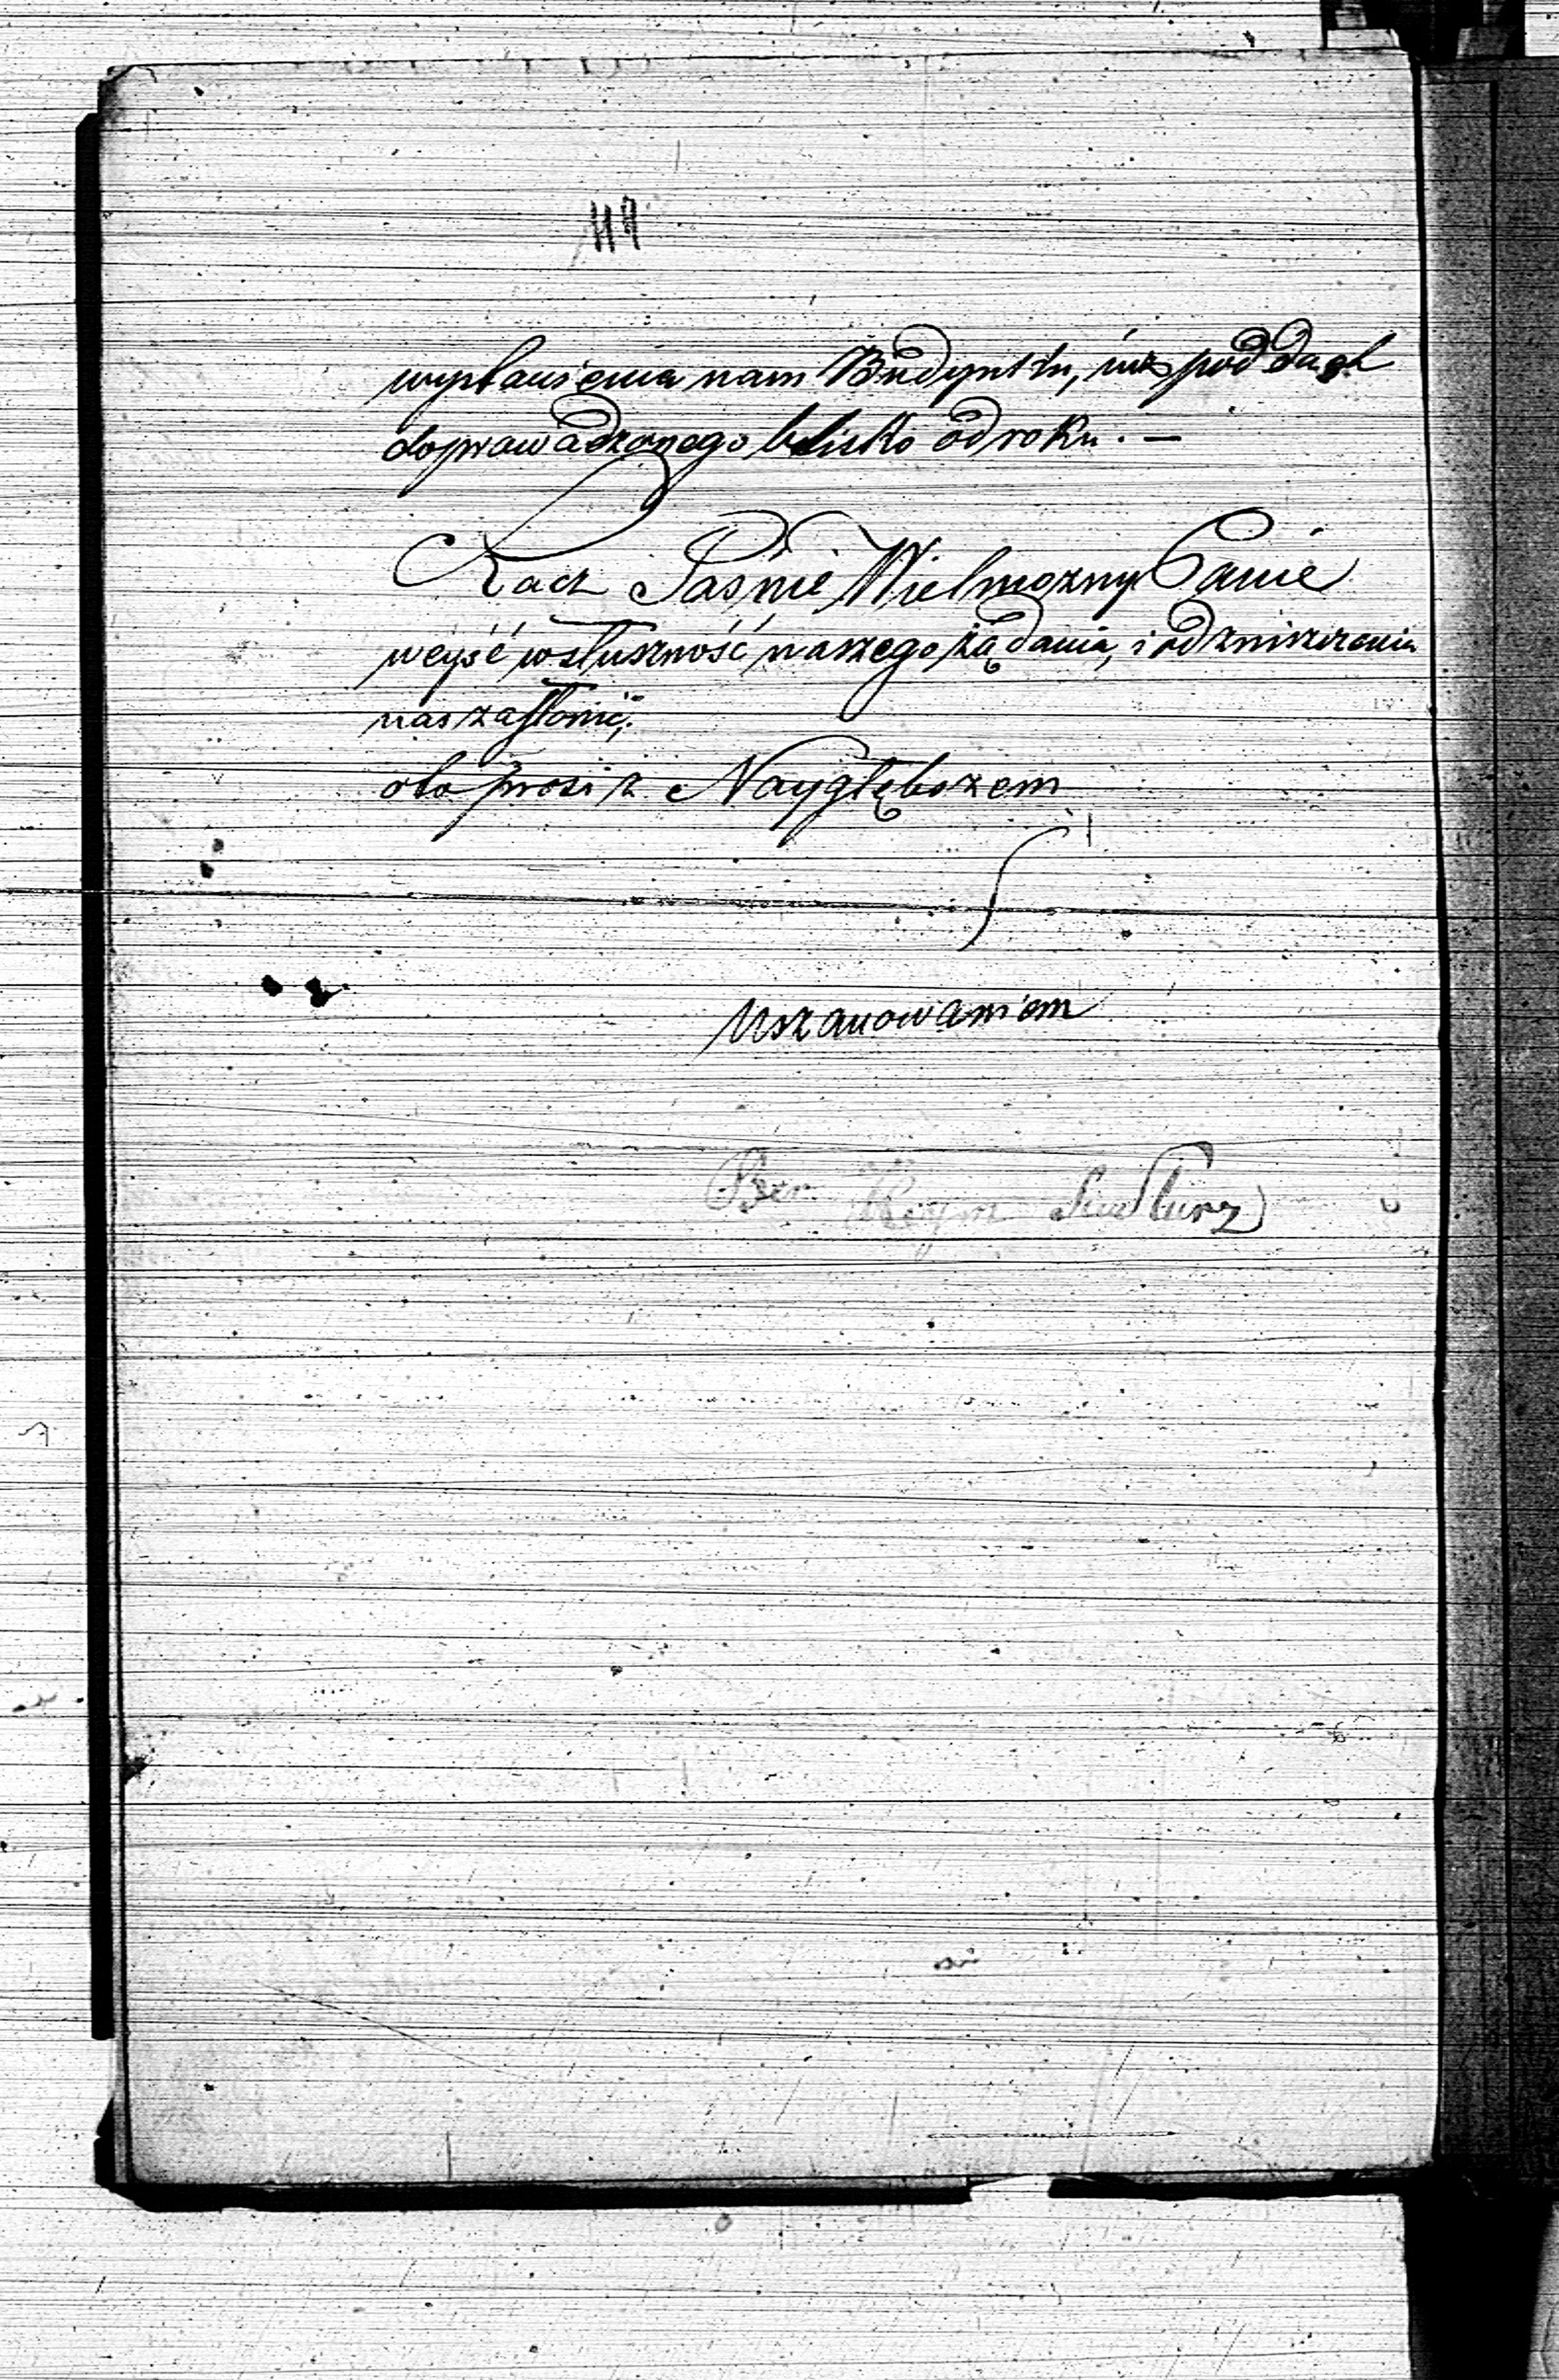 wystawienia nam Budynku, iuz pod dach
doprowadzonego blisko od roku. —
Racz Jaśnie Wielmozny Panie
weyść w słuszność naszego żądania, i od zniszczenia
nas zasłonić,
oto prosi z Naygłębszem
Uszanowaniem
Ber